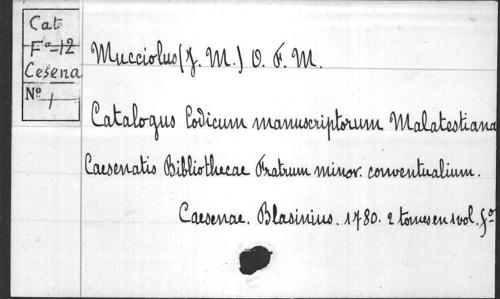 Cat
Fº-12
Cesena
Nº 1
Mucciolus (J. M.) O. F. M.
Catalogus Codicum manuscriptorum Malatestianae
Caesenatis Bibliothecae Fratrum minor. conventualium.
Caesenae. Blasinius. 1780. 2 tomes en 1 vol. fº